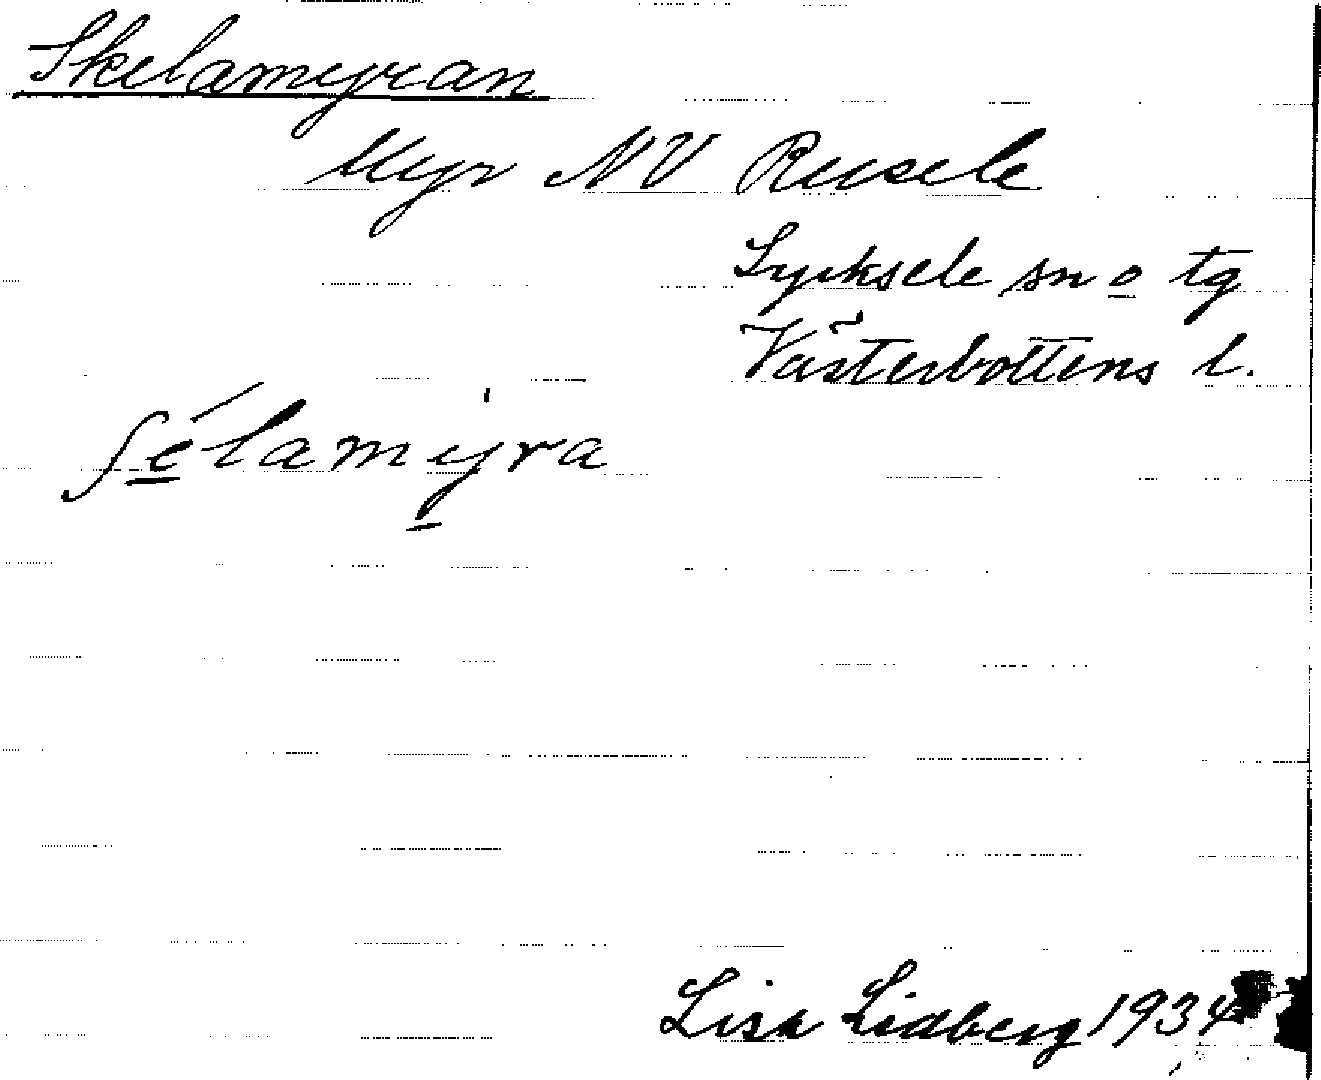 Skelamyran
Myr NV Rusele
Lycksele sn o tg
Västerbottens l.
ʃélamýra
Lisa Lidberg 1934